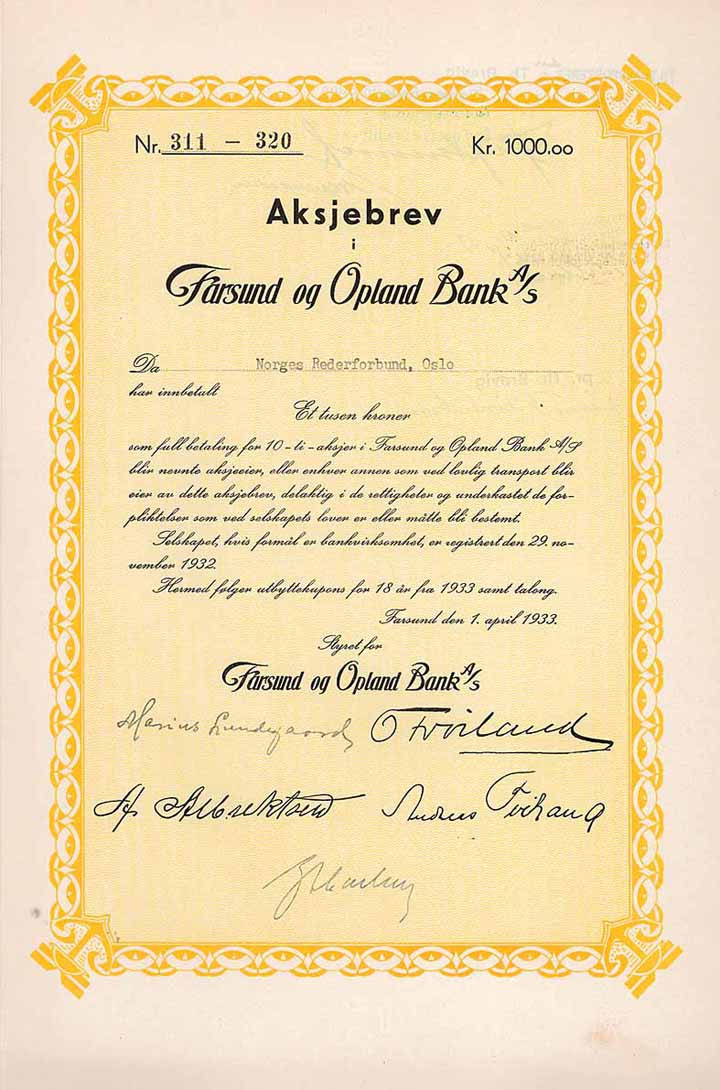 Nr. 311 – 320 Kr. 1000.00
Aksjebrev
i
Farsund og Opland Bank A/S
Da Norges Rederforbund, Oslo
har innbetalt
Et tusen kroner
som full betaling for 10-ti-aksjer i Farsund og Opland Bank A/S
blir nevnte aksjeeier, eller enhver annen som ved lovlig transport blir
eier av dette aksjebrev, delaktig i de rettigheter og underkastet de for-
pliktelser som ved selskapets lover er eller måtte bli bestemt.
Selskapet, hvis formål er bankvirksomhet, er registrert den 29. no-
vember 1932.
Hermed følger utbyttekupons for 18 år fra 1933 samt talong.
Farsund den 1. april 1933.
Styret for
Farsund og Opland Bank A/S
Marius Lundegaard
Albrektsen